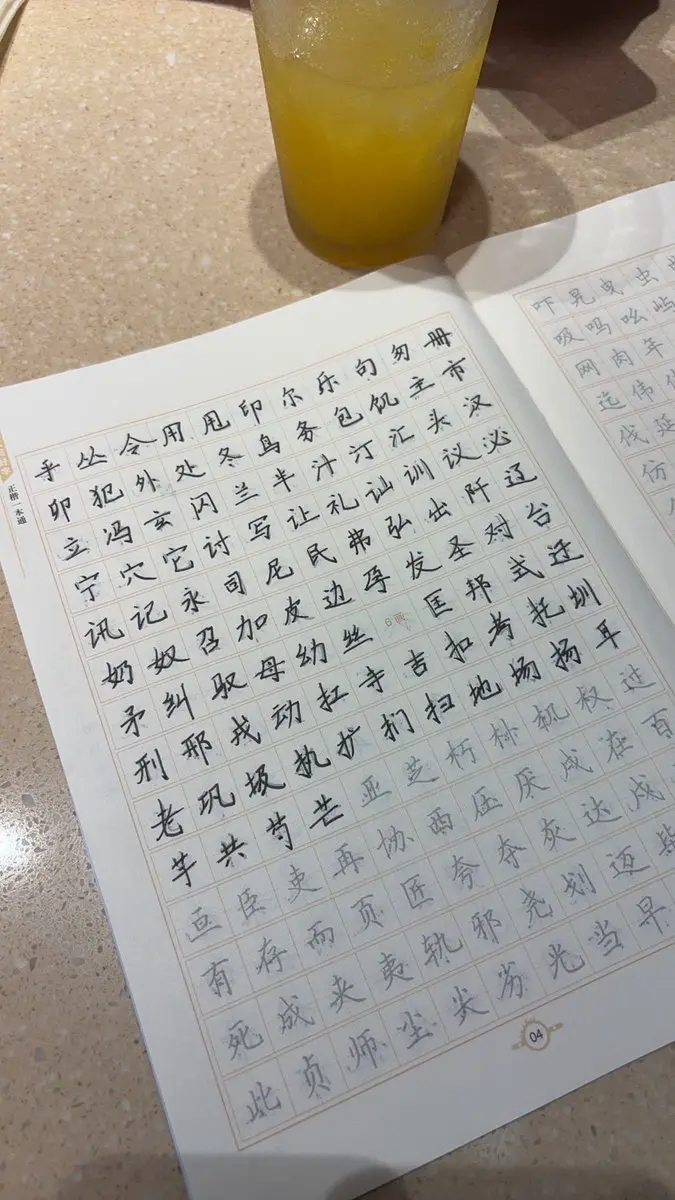 乎丛令用甩印尔乐句匆册
卯犯外处冬鸟务包饥主市
立冯玄闪兰半汁汀汇头汉
宁穴它讨写让礼讪训议必
讯记永司尼民弗弘出阡辽
奶奴召加皮边孕发圣对台
矛纠驭母幼丝 6画 匡邦式迂
刑邢戎动扛寺吉扣考托圳
老巩圾执扩扪扫地场扬耳
芋共芍芒亚芝朽朴机权过
臣吏再协西压厌戌在百
有存而页匠夸夺灰达戍
死成夹夷轨邪尧划迈毕
此贞师尘尖劣光当早
04
正楷一本通
吓 曳虫
吸吗吆屿
网肉年
迄伟
伐延
仿